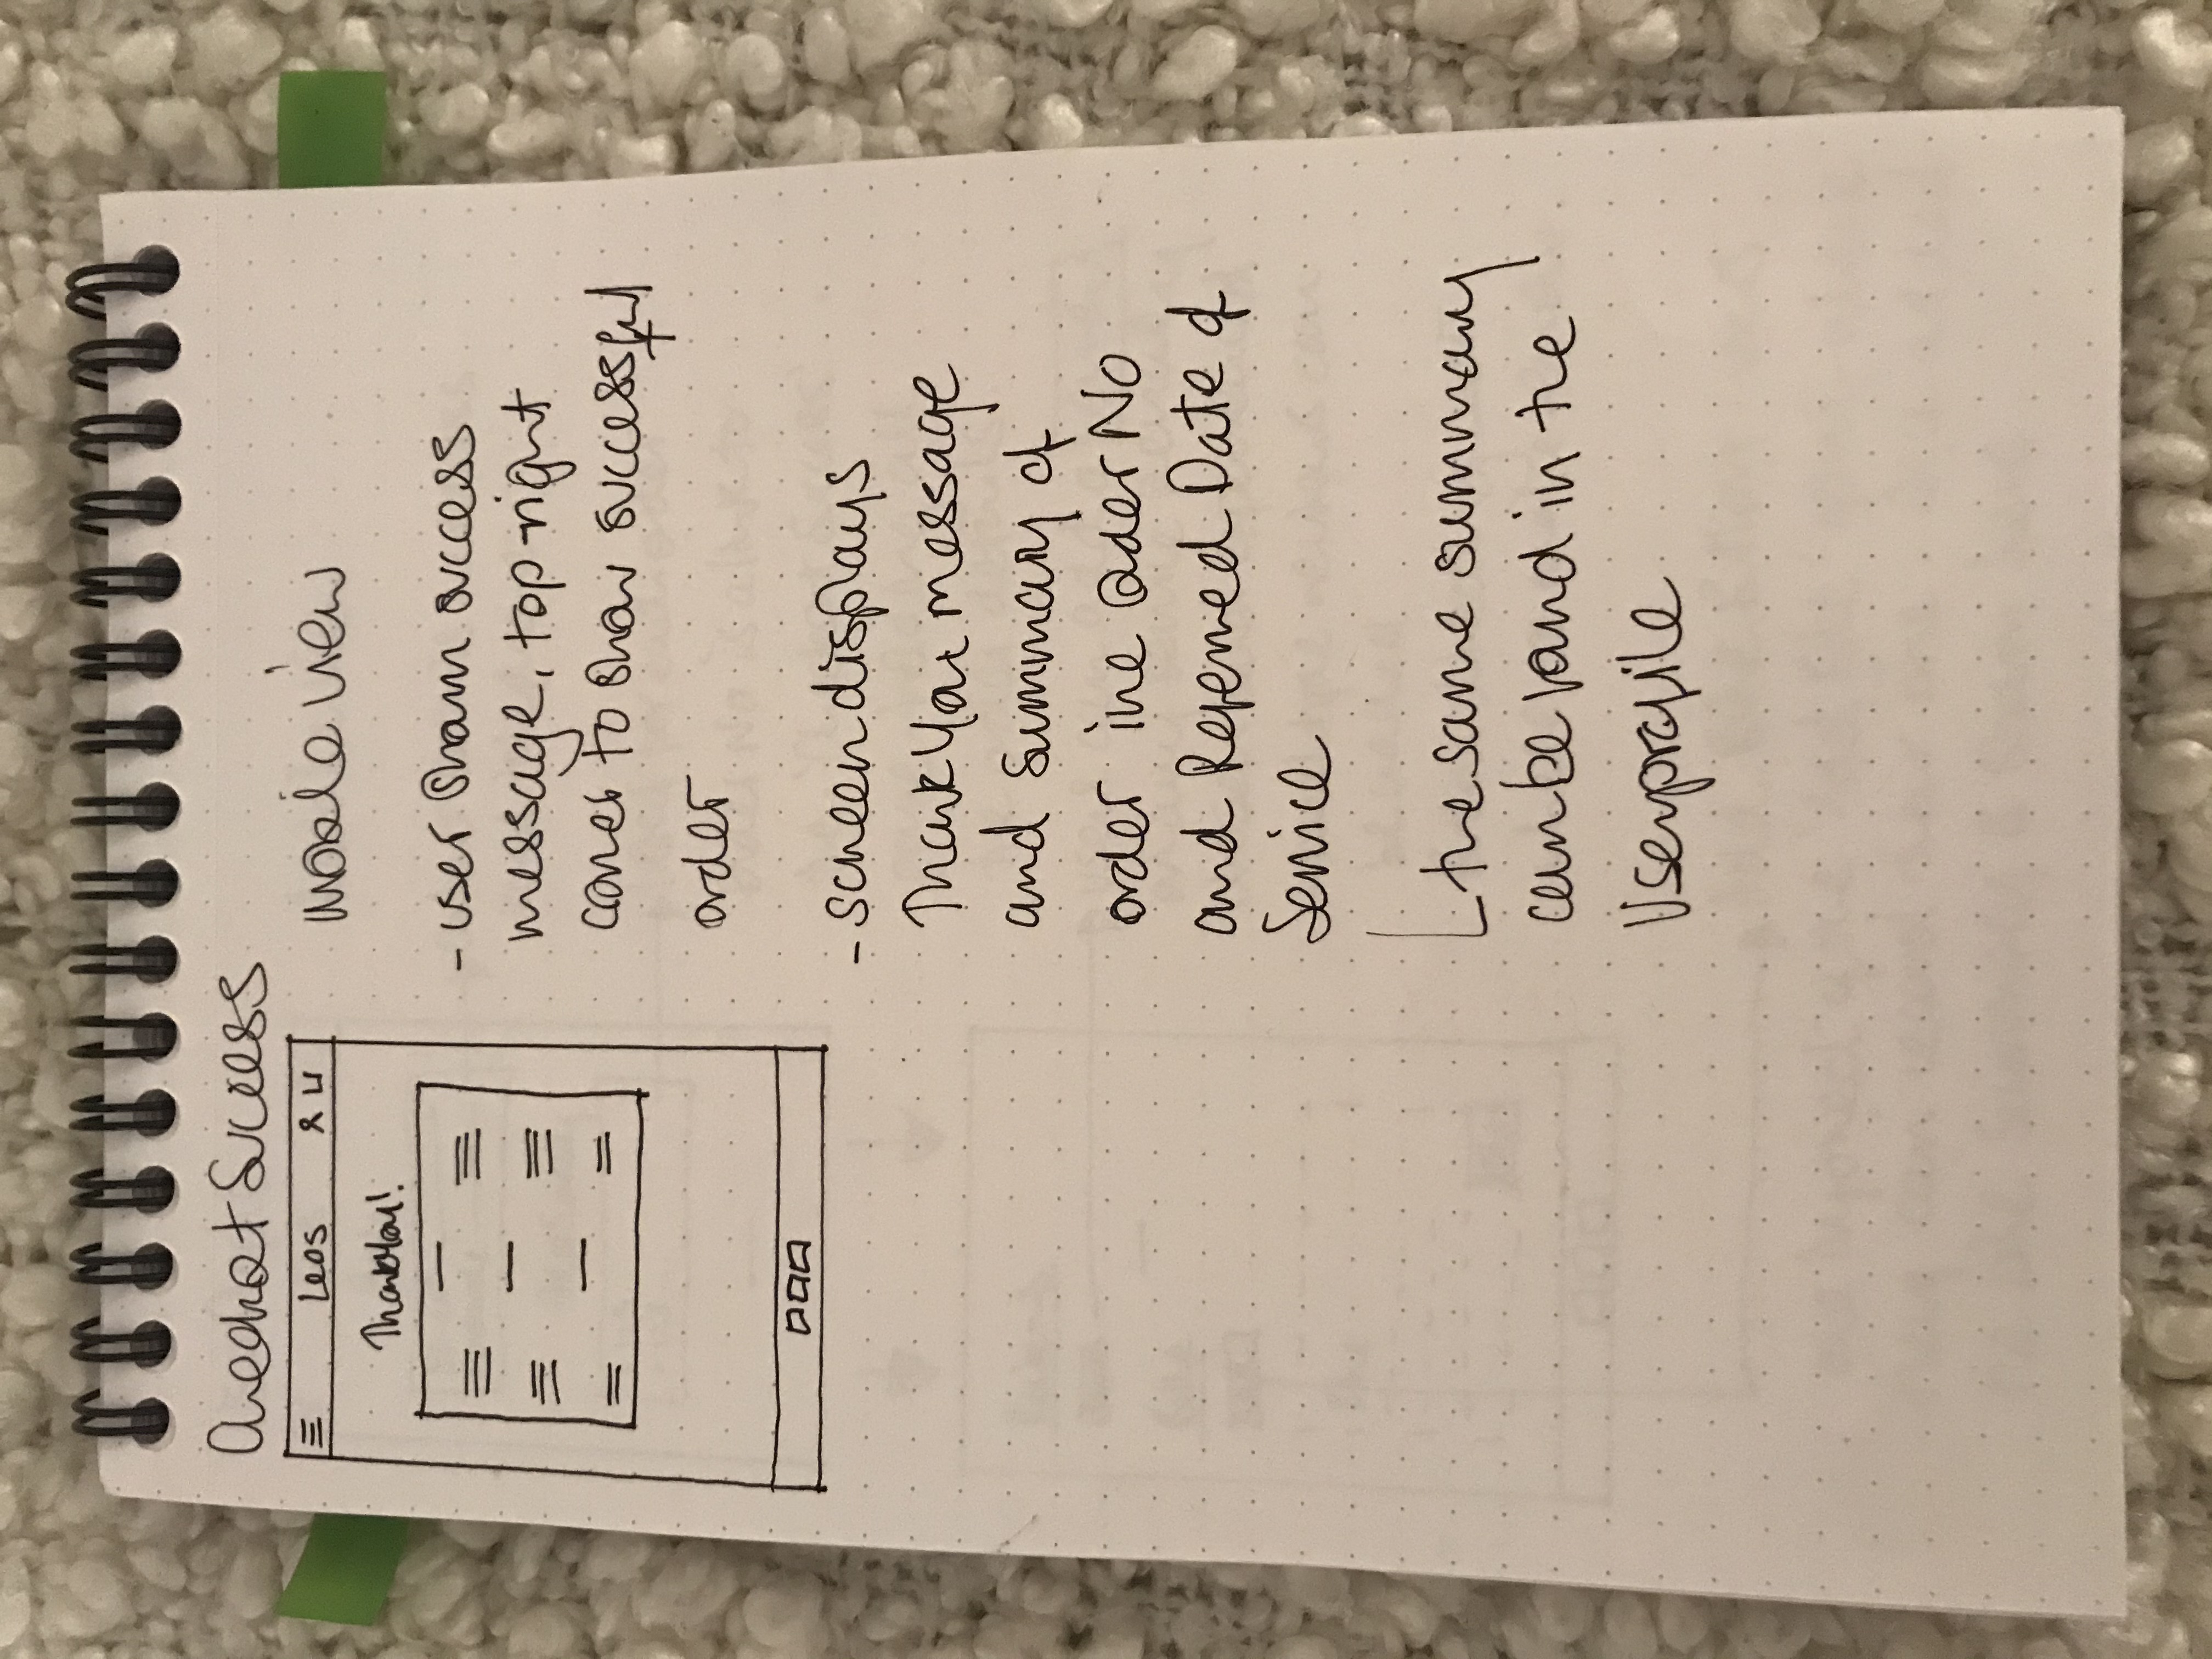 Checkout Success
Leos
Thank You!
Mobile View
- user shown success
message, top right
corner to show successful
order
- screen displays
Thank You message
and summary of
order inc Order No
and Referred Date of
Service
the same summary
can be found in the
User profile